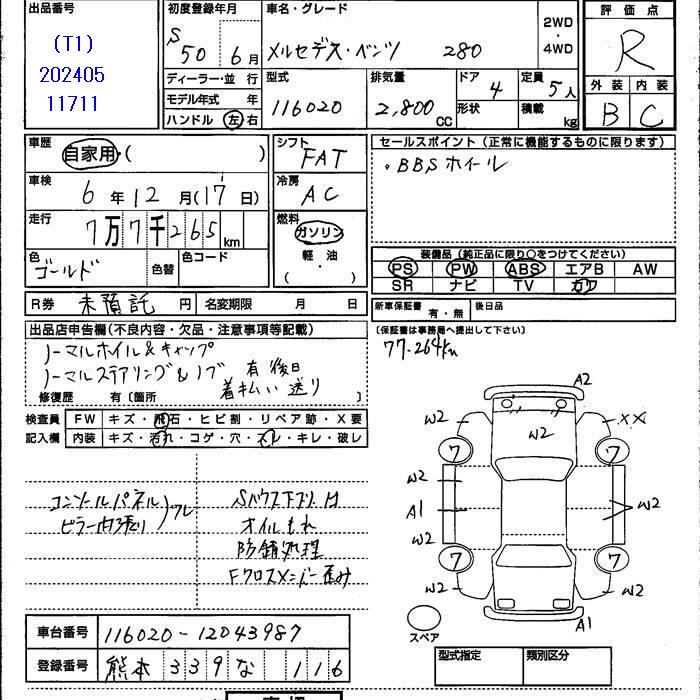 出品番号
(T1)
202405
11711
初度登録年月
S 50 6月
ディーラー・並 行
モデル年式 年
ハンドル 左 右
車名・グレード
メルセデス・ベンツ 280
2WD
・
4WD
型式
116020
排気量
2,800 CC
ドア 4
形状
定員 5人
積載 kg
評価点
R
外装 内装
B C
車歴
自家用・( )
車検
6年12月(17日)
走行
7万7千265km
色
ゴールド
色替
色コード
シフト
FAT
冷房
AC
燃料
ガソリン
軽・油
( )
セールスポイント(正常に機能するものに限ります)
・BBSホイール
装備品(純正品に限り○をつけてください)
PS PW ABS エアB AW
SR ナビ TV カワ
R券 未預託 円 名変期限 月 日
新車保証書 有・無 後日品
(保証書は事務局へ提出して下さい)
77-264km
出品店申告欄(不良内容・欠品・注意事項等記載)
ノーマルホイル&キャップ
ノーマルステアリング&ノブ 有後日
着払い送り
修復歴 有(箇所 )
検査員 FW キズ・飛石・ヒビ割・リペア跡・X要
記入欄 内装 キズ・汚れ・コゲ・穴・スレ・キレ・破レ
コンソールパネル
ピラー内張り ワレ
オイルもれ
防錆処理
Fクロスメンバー歪み
A2
W2 W2 XX
7 7
W2
A1 W2
W2
7 7
W2 W2
A1
スペア
車台番号 116020-12043987
登録番号 熊本 339 な 116
型式指定 類別区分